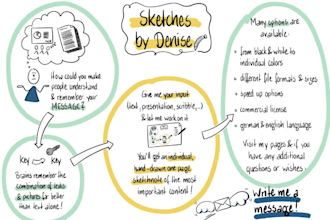 Sketches
by Denise
How could you make
people understand
& remember your
MESSAGE?
Key
Key
Brains remember the
combination of texts
& pictures far better
than text alone!
Give me your input
(text, presentation, scribble,...)
& let me work on it
You'll get an individual,
hand-drawn one page
sketchnote of the most
important content!
Many options are
available:
from black & white to
individual colors
different file formats & sizes
speed up options
commercial license
german & english language
Visit my pages & if you
have any additional
questions or wishes:
Write me a
message!